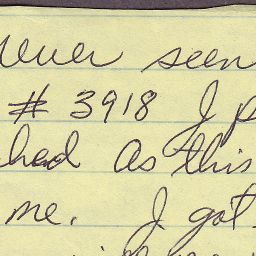 never seen
# 3918 I p
hed as this
me. I got